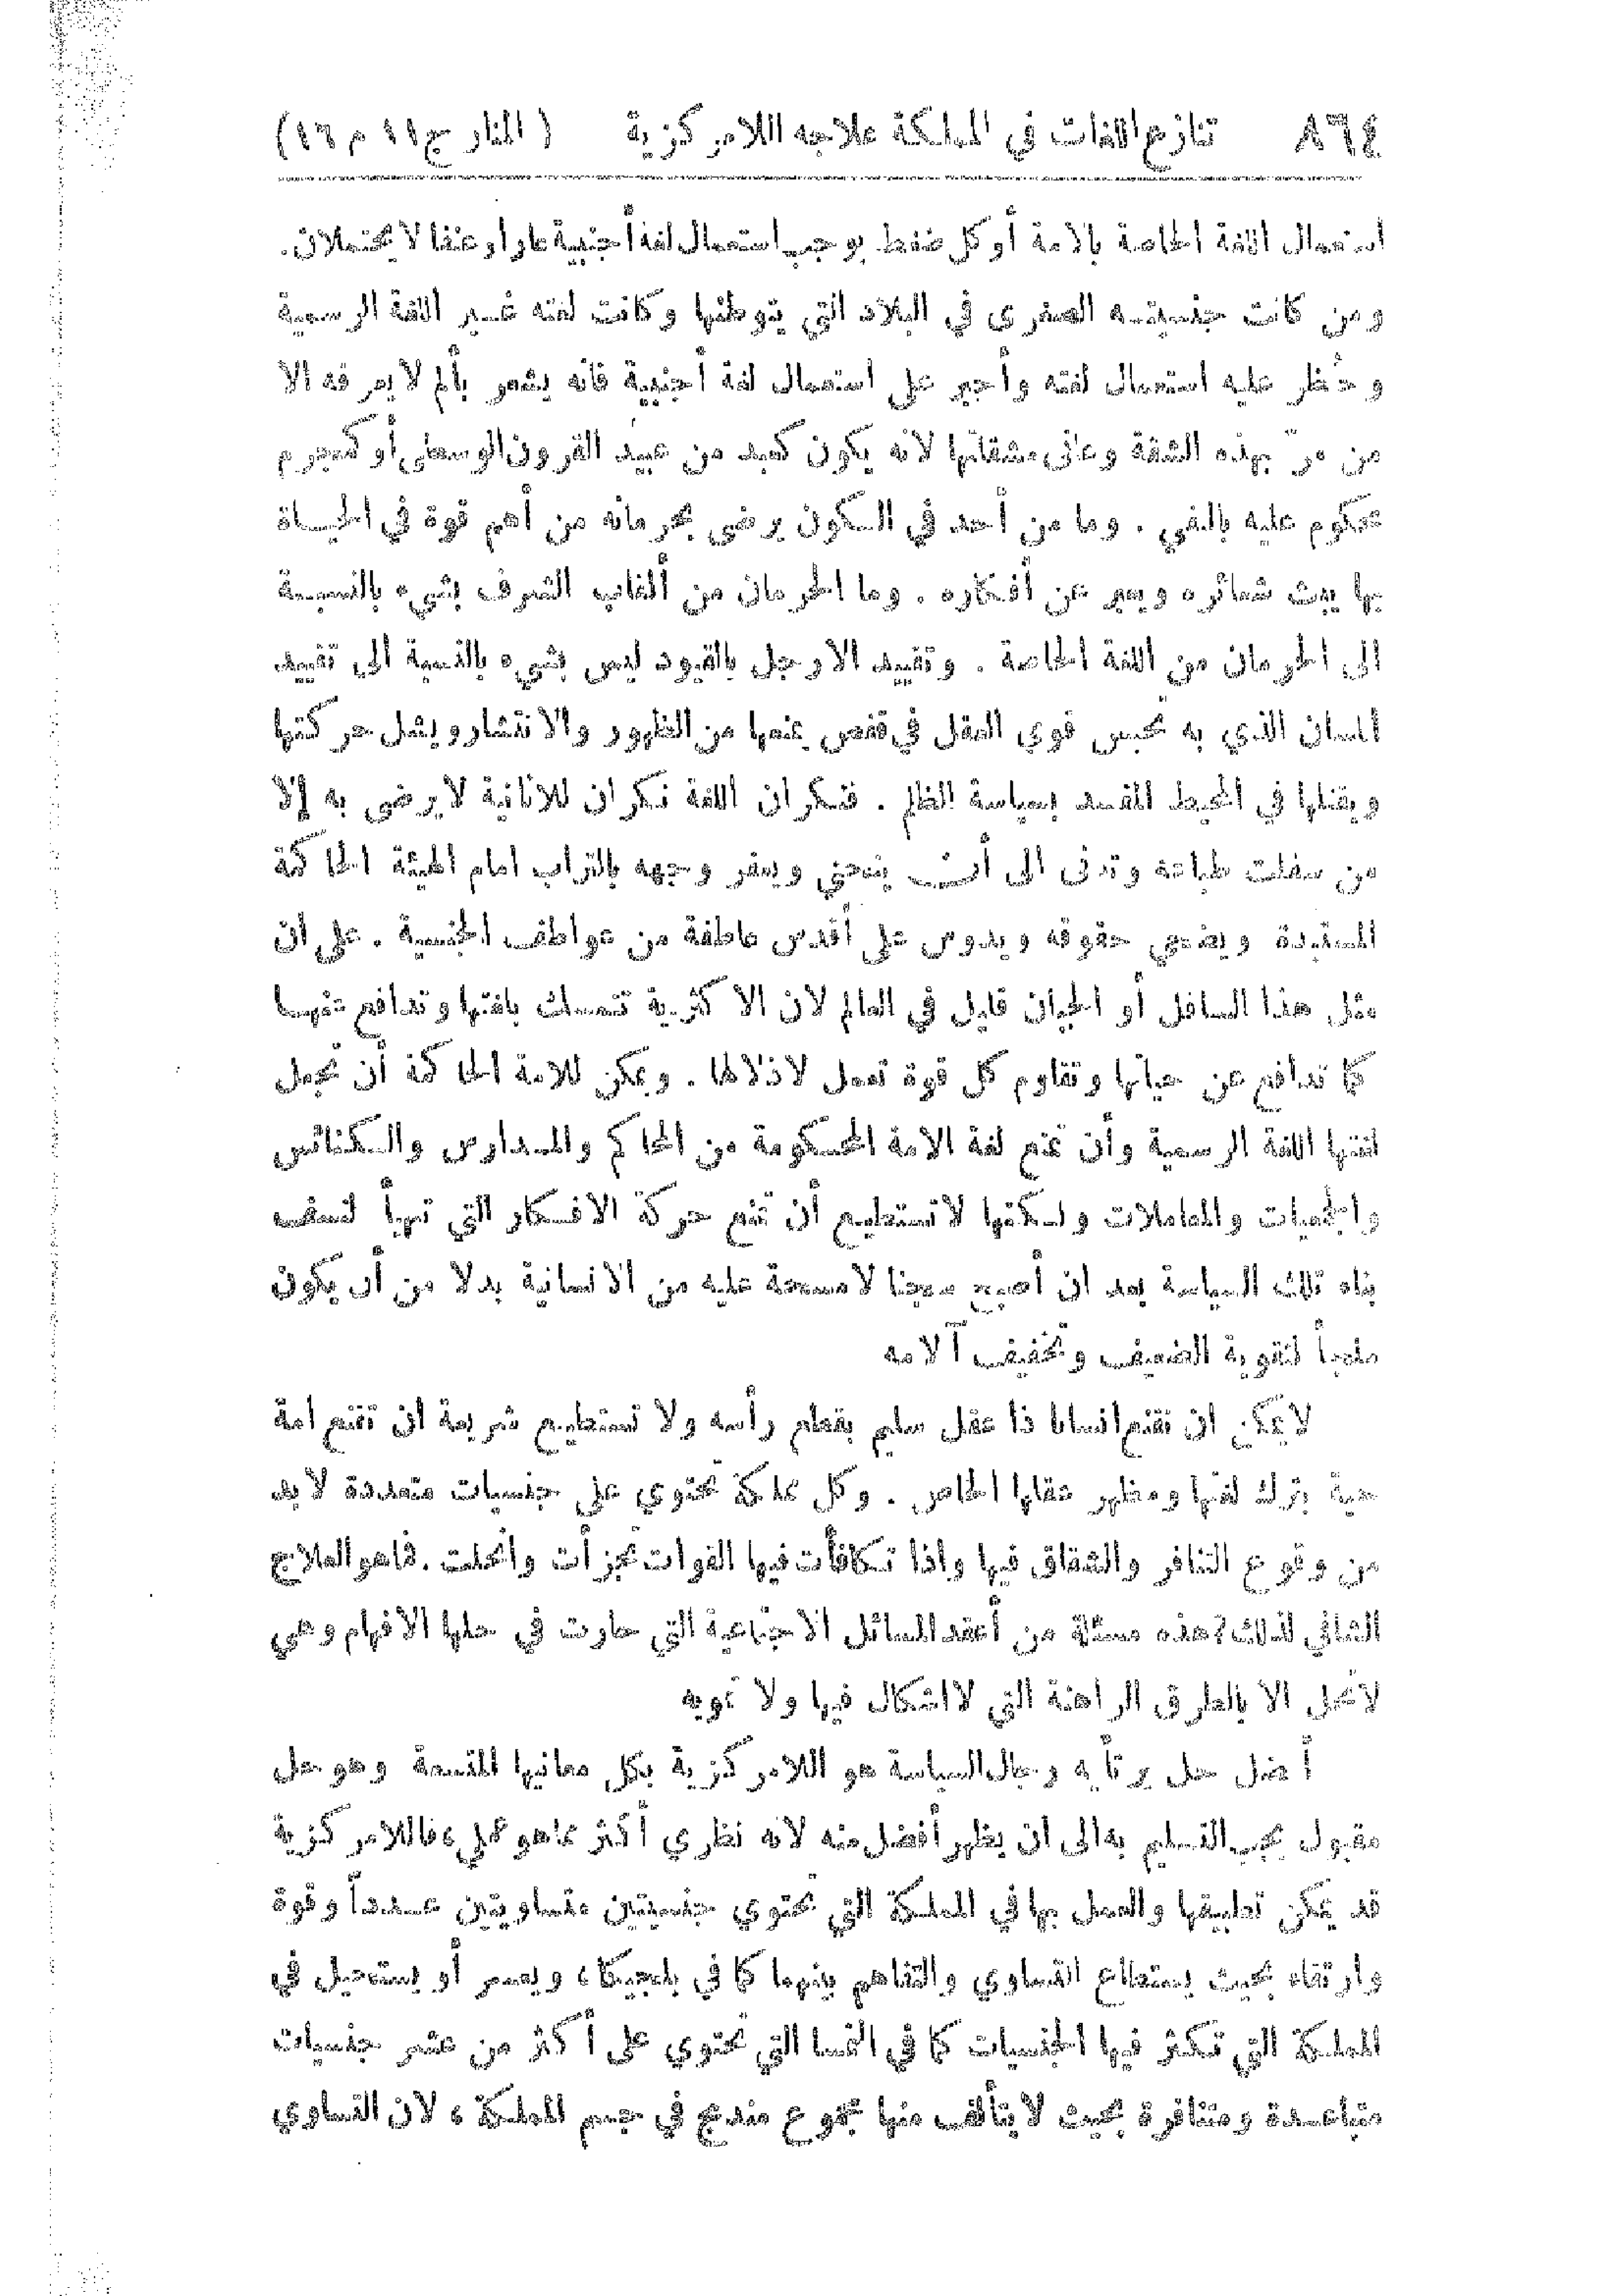 ٨٦٤ تنازع اللغات في المملكة علاجه اللامركزية ( المنار ج ١١ م ١٦ )
استعمال اللغة الخاصة بالامة أو كل ضغط يوجب استعمال لغة أجنبية عارا وعنفا لا يحتملان .
ومن كانت جنسيته الصغرى في البلاد التي يتوطنها وكانت لغته غير اللغة الرسمية
وحُظر عليه استعمال لغته وأجبر على استعمال لغة أجنبية فانه يشعر بألم لا يعرفه الا
من مرّ بهذه الشقة وعانى مشقاتها لانه يكون كعبد من عبيد القرون الوسطى أو كمجرم
محكوم عليه بالنفي . وما من أحد في الكون يرضى بحرمانه من أهم قوة في الحياة
بها يبث شعائره ويعبر عن أفكاره . وما الحرمان من ألقاب الشرف بشيء بالنسبة
الى الحرمان من اللغة الخاصة . وتقييد الارجل بالقيود ليس بشيء بالنسبة الى تقييد
اللسان الذي به تحبس قوى العقل في قفص يمنعها من الظهور والانتشار ويشل حركتها
ويقتلها في المحيط المفسد بسياسة الظلم . فنكران اللغة نكران للانانية لا يرضى به إلا
من سفلت طباعه وتدنى الى أن ينحني ويعفر وجهه بالتراب امام الهيئة الحاكمة
المستبدة ويضحي حقوقه ويدوس على أقدس عاطفة من عواطف الجنسية . على ان
مثل هذا السافل أو الجبان قليل في العالم لان الاكثرية تتمسك بلغتها وتدافع عنها
كما تدافع عن حياتها وتقاوم كل قوة تعمل لاذلالها . ويمكن للامة الحاكمة أن تجعل
لغتها اللغة الرسمية وأن تمنع لغة الامة المحكومة من المحاكم والمدارس والكنائس
والجمعيات والمعاملات ولكنها لا تستطيع أن تمنع حركة الافكار التي تتهيأ لنسف
بناء تلك السياسة بعد ان أصبح سجنا لا مسحة عليه من الانسانية بدلا من أن يكون
ملجأ لتقوية الضعيف وتخفيف آلامه
لا يمكن ان نقنع انسانا ذا عقل سليم بقطع رأسه ولا تستطيع شريعة ان تقنع امة
حية بترك لغتها ومظهر عقلها الخاص . وكل مملكة تحتوي على جنسيات متعددة لا بد
من وقوع التنافر والشقاق فيها واذا تكافأت فيها القوات تجزأت وانحلت . فما هو العلاج
الشافي لذلك ؟ هذه مسئلة من أعقد المسائل الاجتماعية التي حارت في حلها الافهام وهي
لا تحل الا بالطرق الراهنة التي لا اشكال فيها ولا تمويه
أفضل حل يرتأيه رجال السياسة هو اللامركزية بكل معانيها المتسعة وهو حل
مقبول يجب التسليم به الى ان يظهر أفضل منه لانه نظري أكثر مما هو عملي ، فاللامركزية
قد يمكن تطبيقها والعمل بها في المملكة التي تحتوي جنسيتين متساويتين عدداً وقوة
وارتقاء بحيث يستطاع التساوي والتفاهم بينهما كما في بلجيكا ، ويعسر أو يستحيل في
المملكة التي تكثر فيها الجنسيات كما في النمسا التي تحتوي على أكثر من عشر جنسيات
متباعدة ومتنافرة بحيث لا يتألف منها مجموع مندمج في جسم المملكة ، لان التساوي